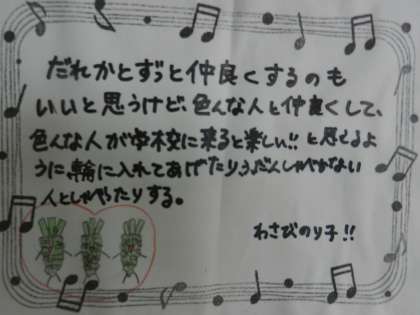 だれかとずっと仲良くするのも
いいと思うけど、色んな人と仲良くして、
色んな人が学校に来ると楽しい!!と思えるよ
うに、輪に入れてあげたり、ふだんしゃべらない
人としゃべったりする。
わさびのり子!!